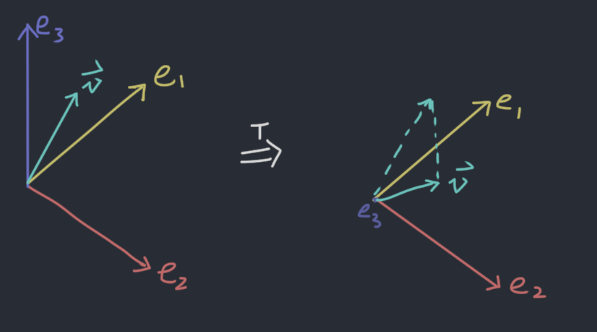 e₃
v⃗
e₁
e₂
T
⇒
e₁
v⃗
e₃
e₂